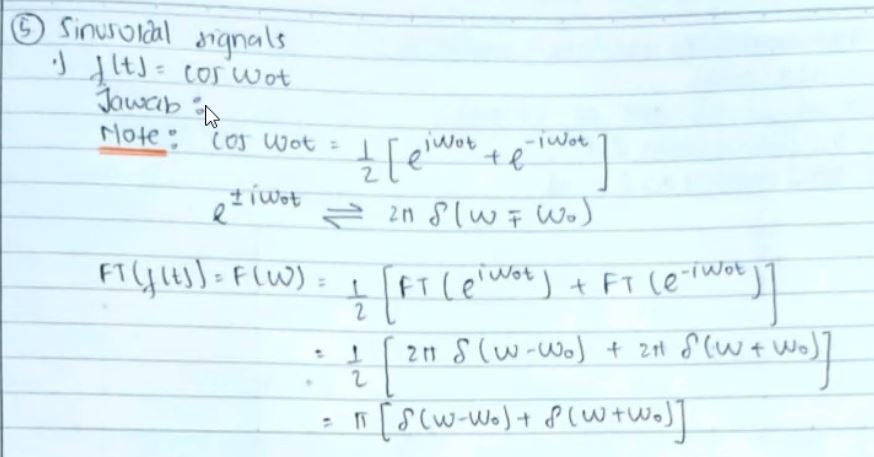 ⑤ Sinusoidal signals
•) f(t) = cos ωot
Jawab :
Note : cos ωot = 1/2 [e^iωot + e^-iωot]
e^±iωot ⇌ 2π δ(ω ∓ ωo)
FT(f(t)) = F(ω) = 1/2 [FT(e^iωot) + FT(e^-iωot)]
= 1/2 [2π δ(ω-ωo) + 2π δ(ω+ωo)]
= π [δ(ω-ωo) + δ(ω+ωo)]